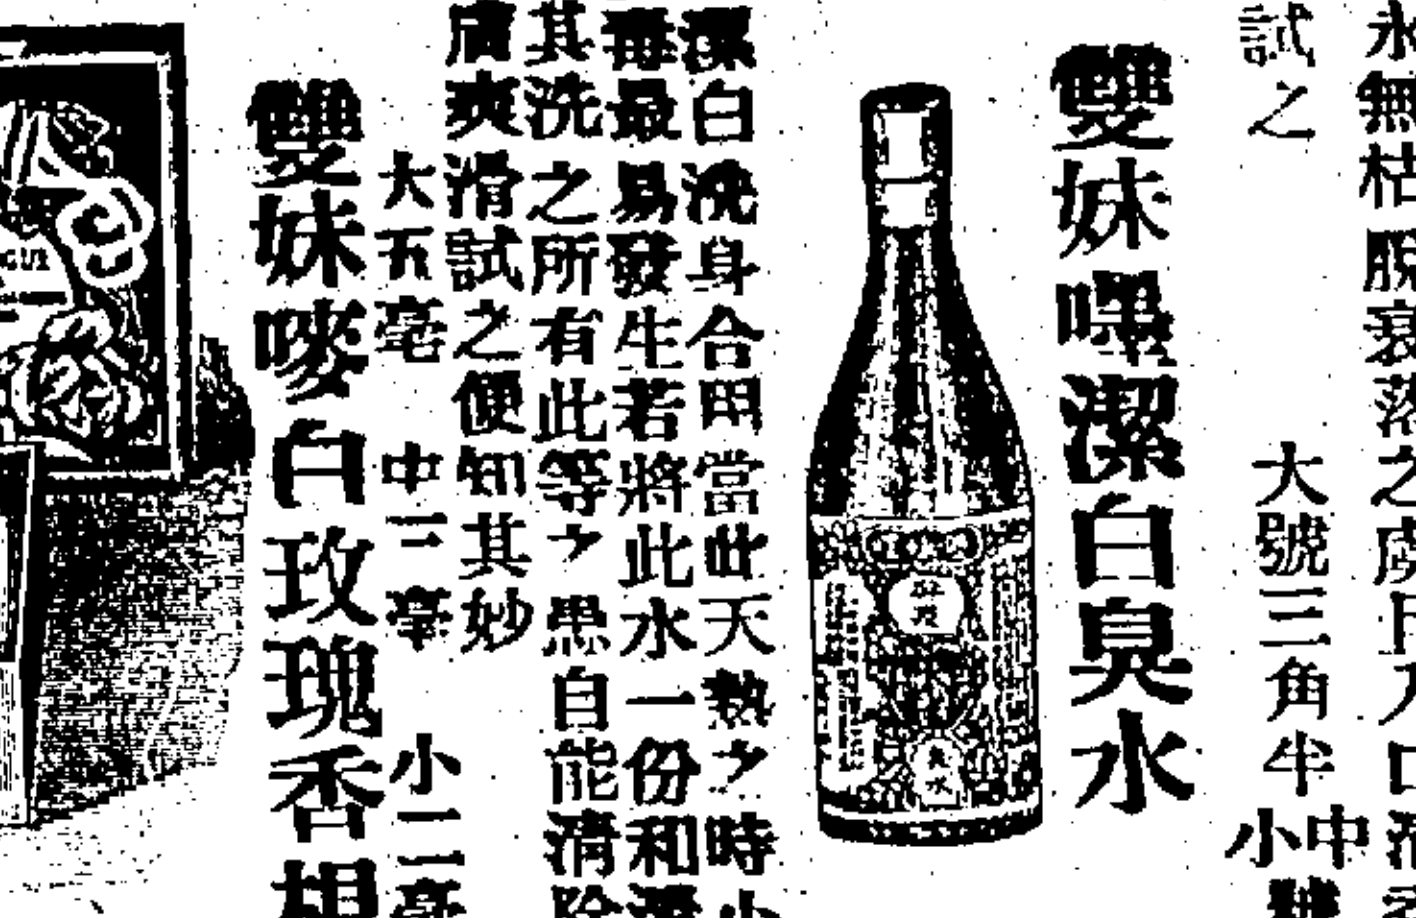 永無枯脫衰落之
試之
大號三角半
小
中
雙妹嘿潔白臭水
潔白洗身合用當此天熱之時小
毒最易發生若將此水一份和
其洗之所有此等之患自能清除
膚爽滑試之便知其妙
大五毫
中三毫
小二毫
雙妹嘜白玫瑰香